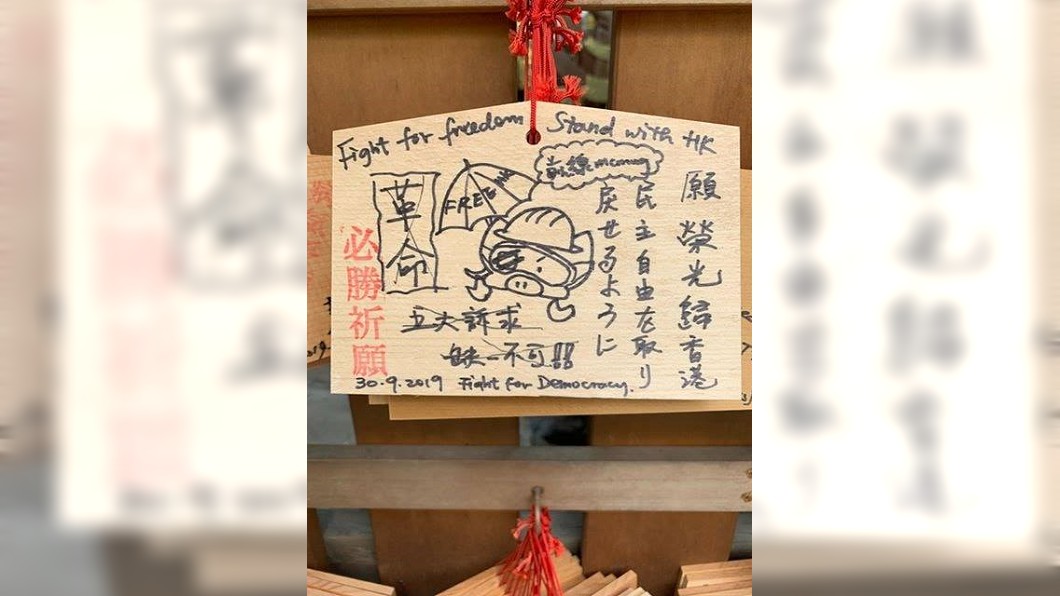 Fight for freedom Stand with HK
願榮光歸香港
民主自由を取り
戻せるように
前線memory
FREE HK
革命
必勝祈願
五大訴求
缺一不可!!
30.9.2019 Fight for Democracy.